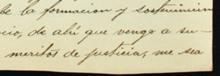 be la formacion y sostenimien
cio, de ahi que vengo a su-
meritos de justicia, me sea